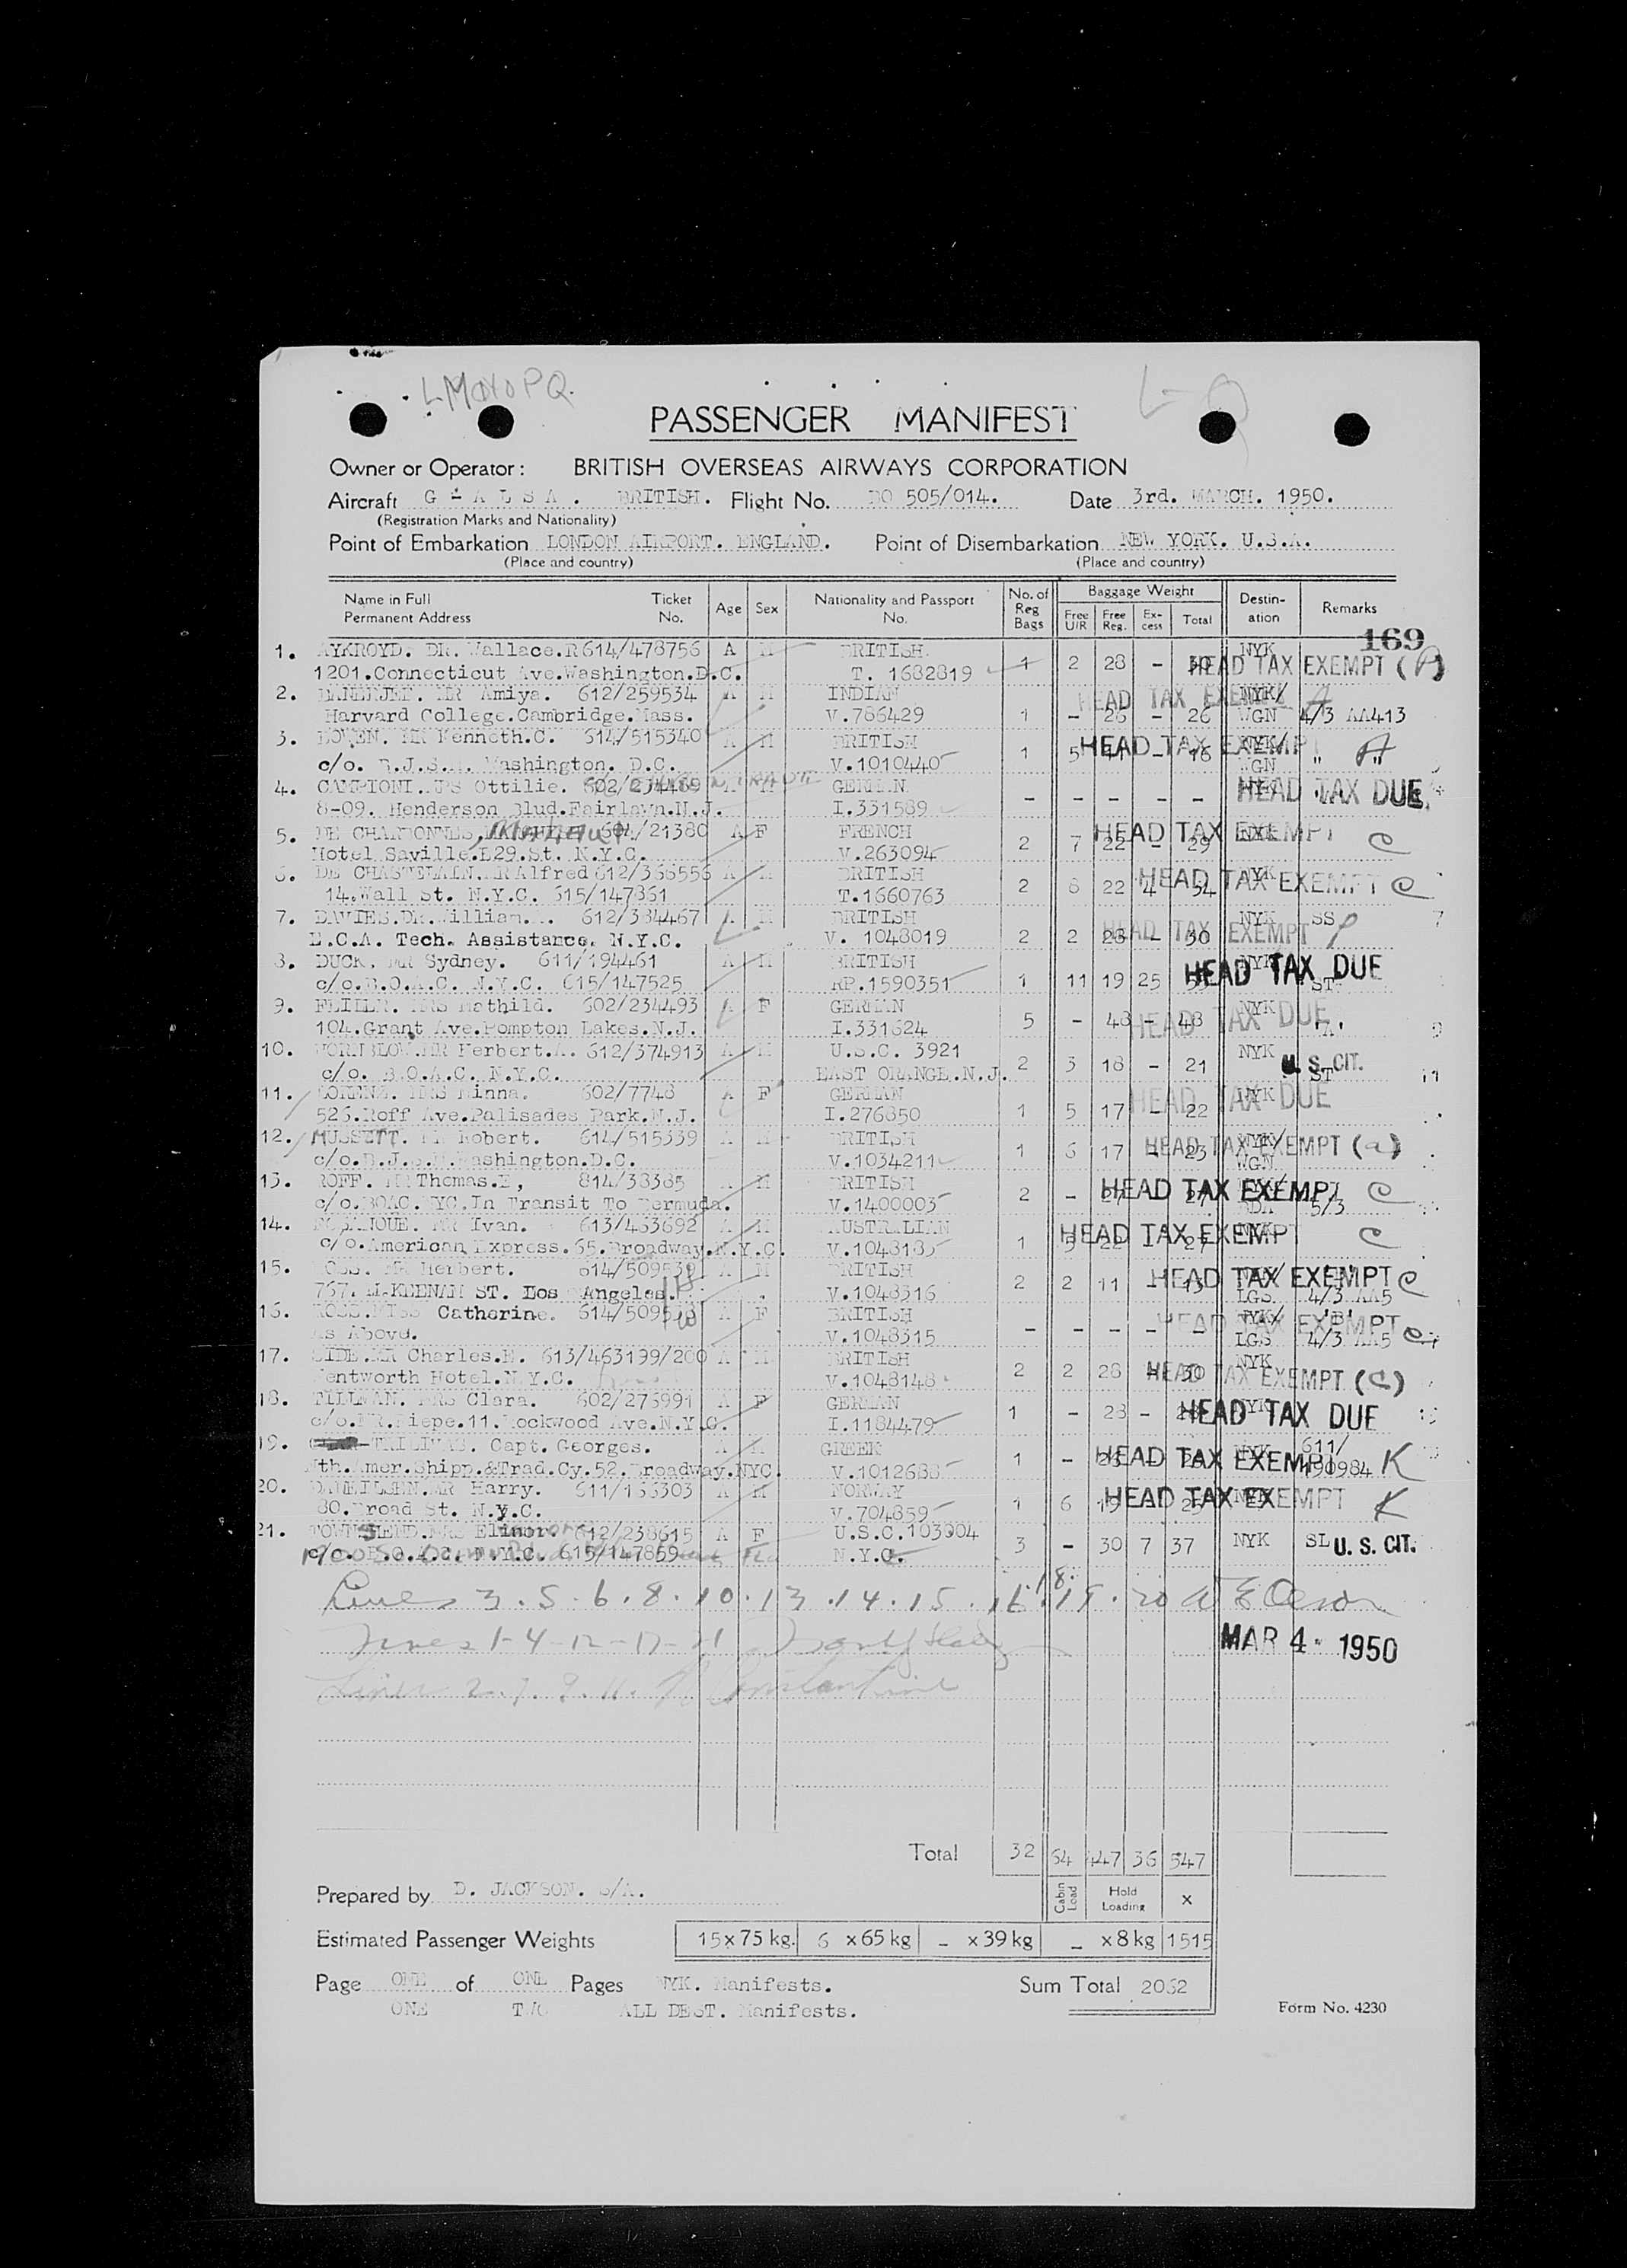 LMNOPQ
L-Q
PASSENGER MANIFEST
Owner or Operator: BRITISH OVERSEAS AIRWAYS CORPORATION
Aircraft G - A L S A . BRITISH. Flight No. BO 505/014. Date 3rd. MARCH. 1950.
(Registration Marks and Nationality)
Point of Embarkation LONDON AIRPORT. ENGLAND. Point of Disembarkation NEW YORK. U.S.A.
(Place and country) (Place and country)
Name in Full Permanent Address Ticket No. Age Sex Nationality and Passport No. No. of Reg Bags Baggage Weight Free U/R Free Reg. Ex-cess Total Destin-ation Remarks
169
1. AYKROYD. DR. Wallace.R 614/478756 A M BRITISH. NYK
1201.Connecticut Ave.Washington.D.C. T. 1682819 1 2 28 - 30 HEAD TAX EXEMPT (A)
2. BANERJEE. MR Amiya. 612/259534 A M INDIAN HEAD TAX EXEMPT NYK/ A
Harvard College.Cambridge.Mass. V.786429 1 - 26 - 26 WGN 4/3 AA413
3. BOWEN. MR Kenneth.C. 614/515340 A M BRITISH NYK/
c/o. B.J.S.M. Washington. D.C. V.1010440 1 5 11 - 16 HEAD TAX EXEMPT WGN " " A
4. CAMPIONI.MRS Ottilie. 602/234489 GERMAN NYK
8-09. Henderson Blud.Fairlawn.N.J. I.331589 - - - - - HEAD TAX DUE
5. DE CHARDONNES 604/21380 A F FRENCH NYK
Hotel Saville.E29.St. N.Y.C. V.263094 2 7 22 - 29 HEAD TAX EXEMPT C
6. DE CHASTELAIN.MR Alfred 612/366556 A M BRITISH NYK
14.Wall St. N.Y.C. 615/147861 T.1660763 2 8 22 4 34 HEAD TAX EXEMPT C
7. DAVIES.DR.William. 612/384467 A M BRITISH NYK SS
E.C.A. Tech. Assistance. N.Y.C. V. 1048019 2 2 28 - 30 HEAD TAX EXEMPT
8. DUCK. MR Sydney. 611/194461 A M BRITISH NYK
c/o.B.O.A.C. N.Y.C. 615/147525 RP.1590351 1 11 19 25 HEAD TAX DUE ST
9. MRS Mathild. 602/234493 A F GERMAN NYK
104.Grant Ave.Pompton Lakes.N.J. I.331624 5 - 48 - 48 HEAD TAX DUE 'A'
10. HORNBLOW.MR Herbert.A. 612/374913 A M U.S.C. 3921 NYK
c/o. B.O.A.C. N.Y.C. EAST ORANGE.N.J. 2 3 18 - 21 ST U. S. CIT.
11. LORENZ. MRS Minna. 602/7748 A F GERMAN NYK
526.Roff Ave.Palisades Park.N.J. I.276850 1 5 17 - 22 HEAD TAX DUE
12. MUSSETT. MR Robert. 614/515339 A M BRITISH NYK/
c/o.B.J.S.M.Washington.D.C. V.1034211 1 6 17 - 23 HEAD TAX EXEMPT (a) WGN
13. ROFF. MR Thomas.E, 814/38385 A M BRITISH NYK/
c/o.BOAC.NYC.In Transit To Bermuda. V.1400003 2 - 27 - 27 HEAD TAX EXEMPT BDA 5/3 C
14. MR Ivan. 613/463692 A M AUSTRALIAN NYK
c/o.American Express.65.Broadway.N.Y.C. V.1048185 1 5 22 - 27 HEAD TAX EXEMPT C
15. ROSS. MR Herbert. 614/509539 A M BRITISH NYK/
767. McKEENAN ST. Los Angeles. V.1048316 2 2 11 - 13 HEAD TAX EXEMPT C LGS 4/3 AA5
16. ROSS.MISS Catherine. 614/509538 A F BRITISH NYK/ 'B'
As Above. V.1048315 - - - - - HEAD TAX EXEMPT C LGS 4/3 AA5
17. SIDE.MR Charles.H. 613/463199/200 A M BRITISH NYK
Wentworth Hotel.N.Y.C. V.1048148 2 2 28 - 30 HEAD TAX EXEMPT (C)
18. TILLMAN. MRS Clara. 602/276991 A F GERMAN NYK
c/o.MR.Piepe.11.Lockwood Ave.N.Y.C. I.1184479 1 - 28 - 28 HEAD TAX DUE
19. Capt. Georges. A M GREEK NYK 611/
Nth.Amer.Shipp.&Trad.Cy.52.Broadway.NYC. V.1012688 1 - HEAD TAX EXEMPT 190984 K
20. DANEILSEN.MR Harry. 611/166303 A M NORWAY NYK
80.Broad St. N.Y.C. V.704859 1 6 19 - 25 HEAD TAX EXEMPT K
21. TOWNSHEND.MRS Elinor. 612/238615 A F U.S.C.103904
c/o. B.O.A.C. N.Y.C. 615/147869 N.Y.C. 3 - 30 7 37 NYK SL U. S. CIT.
Lines 3.5.6.8.10.13.14.15.16.18.19.20 W E Olson
Lines 1-4-12-17-21
MAR 4 - 1950
Lines 2.7.9.11. Constantine
Total 32 64 447 36 547
Prepared by D. JACKSON. S/A.
Cabin Load Hold Loading X
Estimated Passenger Weights 15 x 75 kg. 6 x 65 kg - x 39 kg - x 8 kg 1515
Page ONE of ONE Pages NYK. Manifests. Sum Total 2062
ONE TWO ALL DEST. Manifests.
Form No. 4230